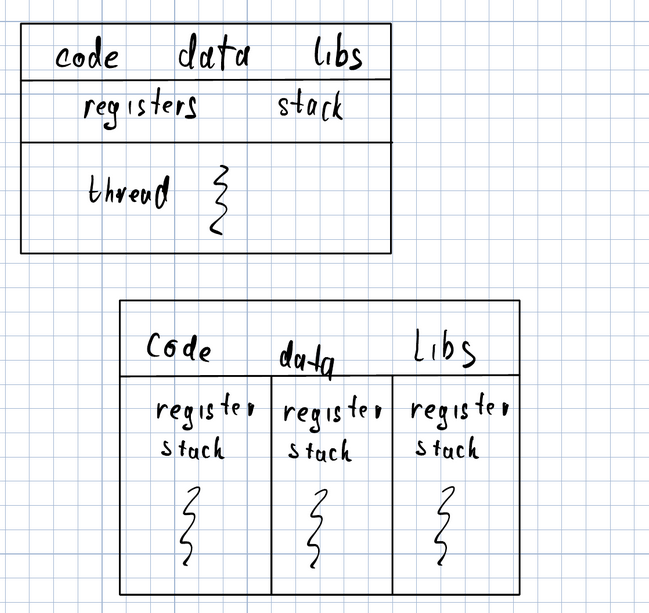 code data libs
registers stack
thread
Code data Libs
register register register
stack stack stack